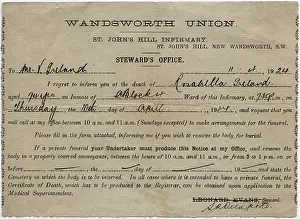 WANDSWORTH UNION.
ST. JOHN'S HILL INFIRMARY,
ST. JOHN'S HILL, NEW WANDSWORTH, S.W.
STEWARD'S OFFICE.
To Mr. Ireland 11 4 1924
I regret to inform you of the death of Rosabella Ireland
aged an Inmate of Block Ward of this Infirmary, at on
Thursday the day of April 19 and to request that you will
call at my office between 10 a.m. and (Sundays excepted) to make arrangements for the funeral.
Please fill in the form attached, informing me if you wish to remove the body for burial.
If a private funeral your Undertaker must produce this Notice at my Office, and remove the
body in a properly covered conveyance, between the hours of 10 a.m. and 11 a.m., or from 3 to 4 p.m. on or
before the day of 19 , stating the
Cemetery in which the body is to be interred. In all cases where it is intended to have a private Funeral, the
Certificate of Death, which has to be produced to the Registrar, can be obtained upon application to the
Medical Superintendent.
LEONARD EVANS, Steward.